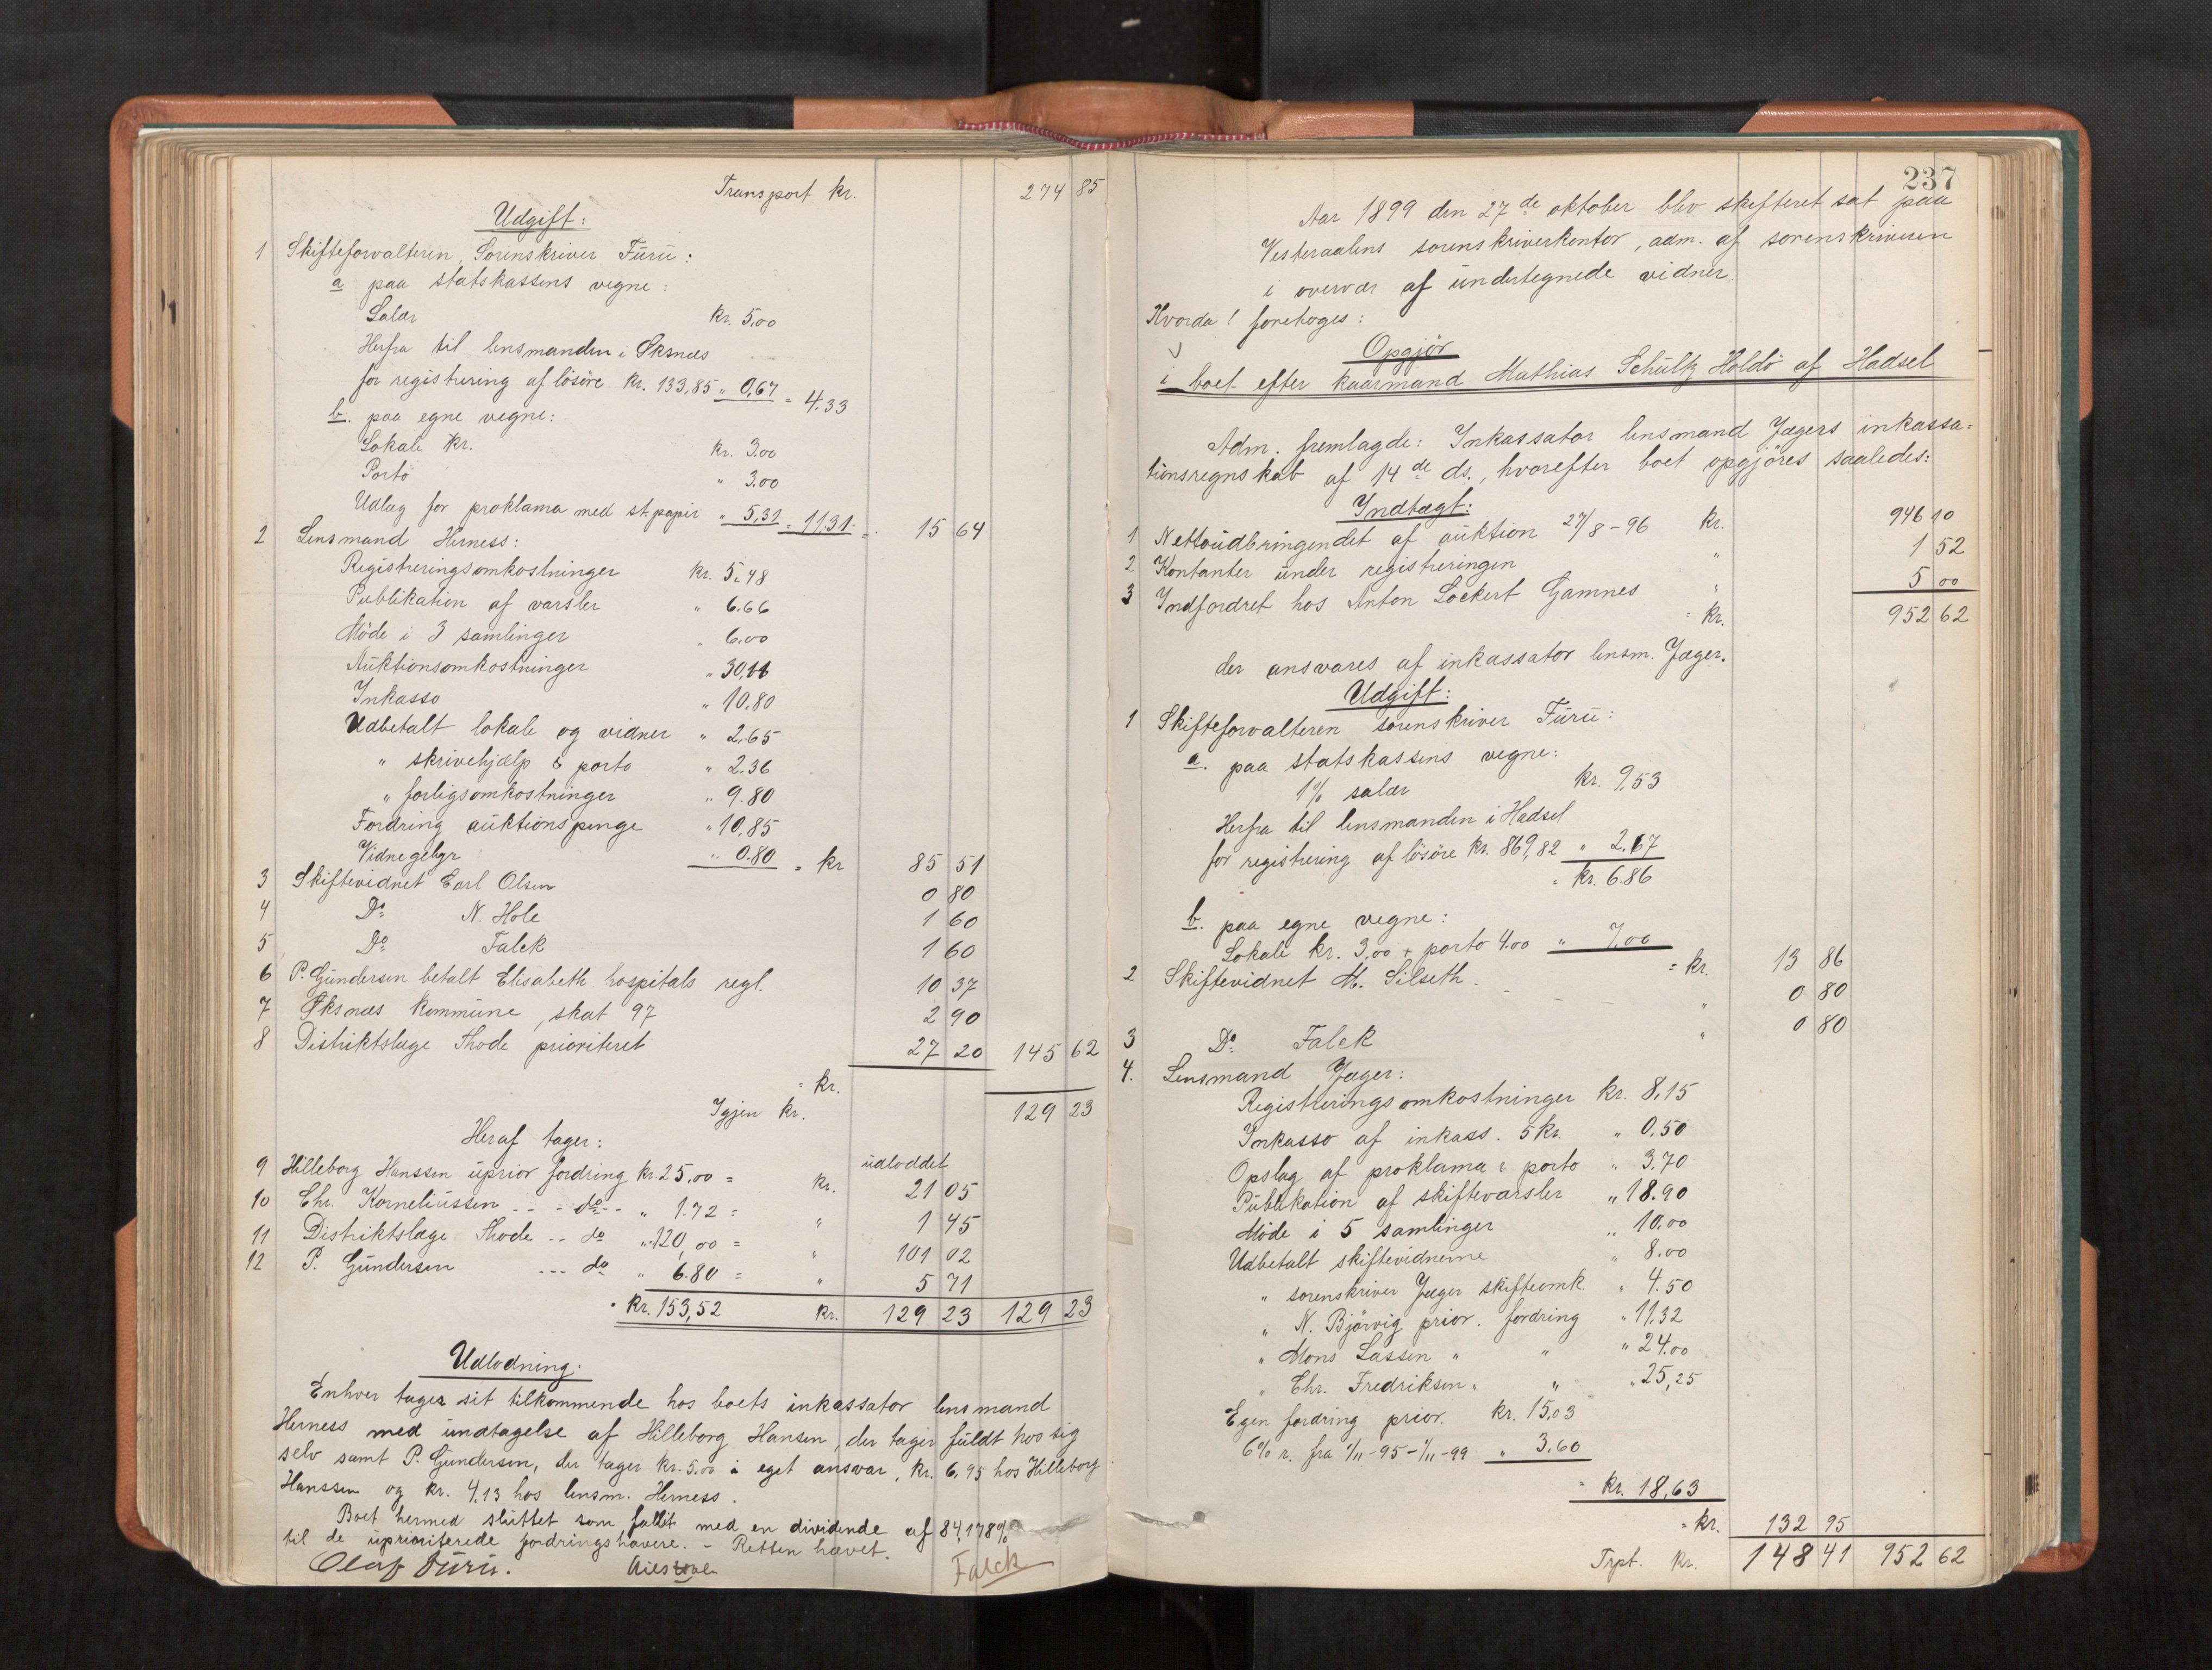 Transport kr. 274 85
Udgift:
1 Skifteforvalteren, Sorenskriver Furu:
a paa statskassens vegne:
Salær kr. 5,00
Herfra til lensmanden i Øksnes
for registrering af løsøre kr. 133,85 " 0,67 = 4.33
b. paa egne vegne:
Lokale kr. kr. 3.00
Porto " 3.00
Udlæg for proklama med st. papir " 5,31 = 11.31 = 15 64
2 Lensmand Herness:
Registreringsomkostninger kr. 5.48
Publikation af varsler " 6.66
Møde i 3 samlinger " 6.00
Auktionsomkostninger " 30,11
Inkasso " 10.80
Udbetalt lokale og vidner " 2.65
" skrivehjælp & porto " 2.36
" forligsomkostninger " 9.80
Fordring auktionspenge " 10,85
Vidnegebyr " 0.80 = kr 85 51
3 Skiftevidnet Carl Olsen 0 80
4 Do N. Hole 1 60
5 Do Falck 1 60
6 P. Gundersen betalt Elisabeth hospitals regl. 10 37
7 Øksnes kommune, skat 97 2 90
8 Distriktslæge Thode prioriteret 27 20 145 62
= kr.
Igjen kr. 129 23
Heraf tager:
udloddet
9 Hilleborg Hanssen uprior fordring kr. 25,00 = kr. 21 05
10 Chr. Korneliussen - - - do - - " 1.72 = " 1 45
11 Distriktslæge Thode - - do " 120,00 = " 101 02
12 P. Gundersen - - - do " 6.80 = " 5 71
= kr. 153,52 kr. 129 23 129 23
Udlodning.
Enhver tager sit tilkommende hos boets inkassator lensmand
Herness med undtagelse af Hilleborg Hansen, der tager fuldt hos sig
selv samt P. Gundersen, der tager kr. 5.00 i eget ansvar, kr. 6,95 hos Hilleborg
Hanssen og kr. 4.13 hos lensm. Herness.
Boet hermed sluttet som fallit med en dividende af 84,178%
til de uprioriterede fordringshavere. - Retten hævet.
Olaf Furu. Falck
237
Aar 1899 den 27de oktober blev skifteret sat paa
Vesteraalens sorenskriverkontor, adm. af sorenskriveren
i overvær af undertegnede vidner.
Hvorda! foretoges:
Opgjør
i boet efter kaarmand Mathias Schultz Holdø af Hadsel
Adm. fremlagde: Inkassator lensmand Jægers inkassa=
tionsregnskab af 14de ds., hvorefter boet opgjøres saaledes:
Indtægt:
1 Nettoudbringendet af auktion 27/8 - 96 kr. 946 10
2 Kontanter under registreringen " 1 52
3 Indfordret hos Anton Lockert Gamnes " 5 00
= kr. 952 62
der ansvares af inkassator lensm. Jæger.
Udgift:
1 Skifteforvalteren sorenskriver Furu:
a. paa statskassens vegne:
1% salær kr. 9,53
Herfra til lensmanden i Hadsel
for registrering af løsøre kr. 869,82 " 2.67
= kr. 6.86
b. paa egne vegne:
Lokale kr. 3,00 + porto 4.00 " 7,00 = kr. 13 86
2 Skiftevidnet M. Silseth. " 0 80
3 Do Falck " 0 80
4. Lensmand Jæger:
Registreringsomkostninger kr. 8,15
Inkasso af inkass. 5 kr. " 0.50
Opslag af proklama & porto " 3.70
Publikation af skiftevarsler " 18.90
Møde i 5 samlinger " 10.00
Udbetalt skiftevidnerne " 8.00
" sorenskriver Jæger skifteomk. " 4.50
" N. Bjørvig prior. fordring " 11,32
" Mons Lassen " " " 24.00
" Chr. Fredriksen " " " 25,25
Egen fordring prior. kr. 15,03
6% r. fra 1/11-95 - 1/11-99 " 3.60
= kr. 18,63
= kr. 132 95
Trpt. kr. 148 41 952 62